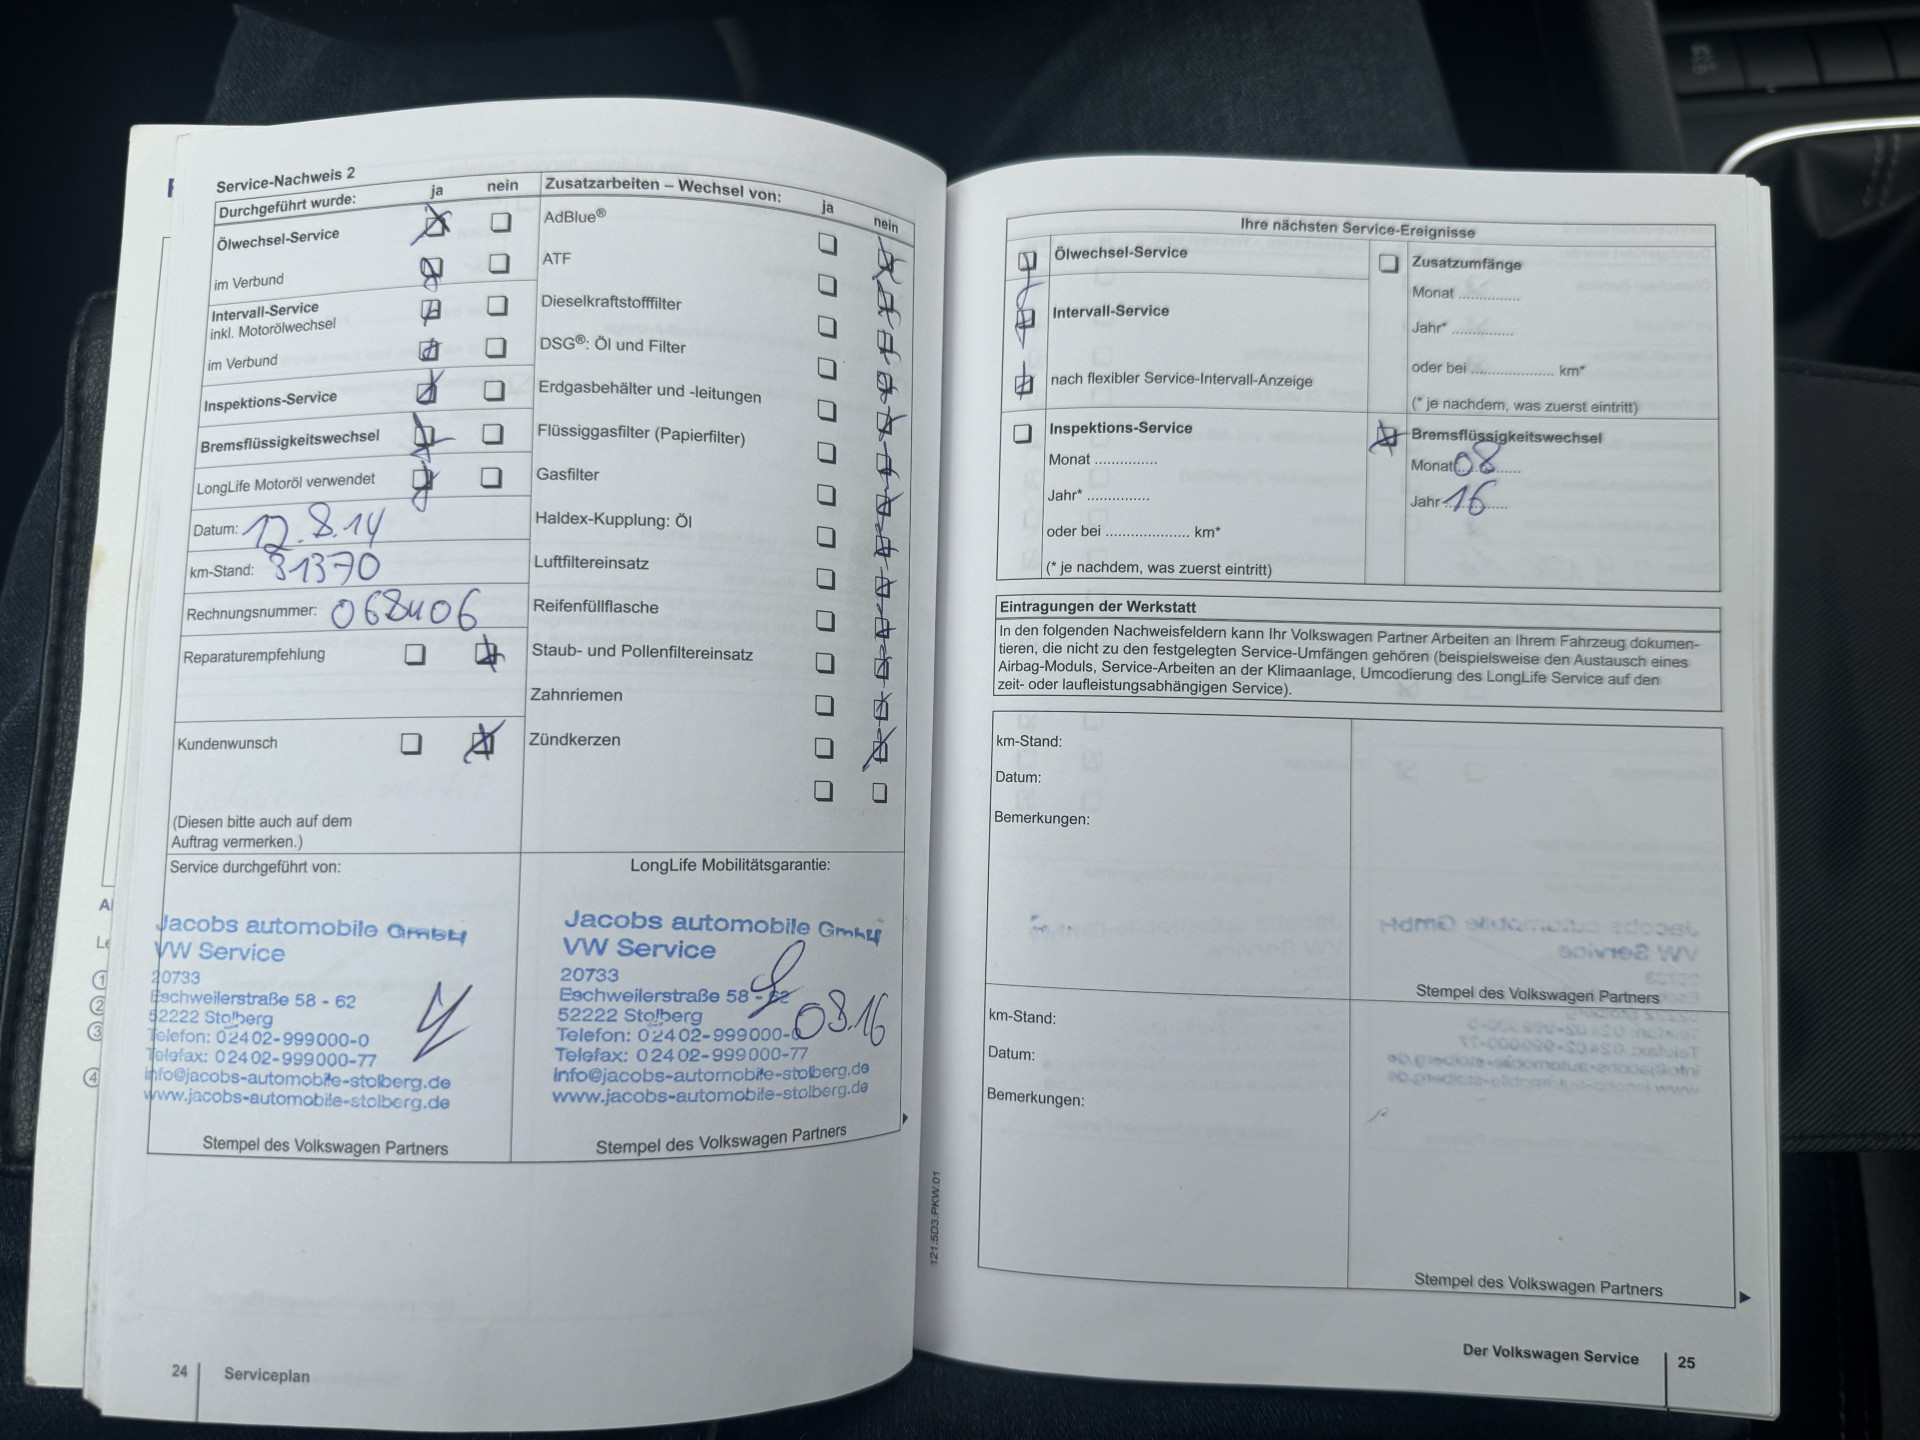 Service-Nachweis 2
Durchgeführt wurde: ja nein
Ölwechsel-Service
im Verbund
Intervall-Service
inkl. Motorölwechsel
im Verbund
Inspektions-Service
Bremsflüssigkeitswechsel
LongLife Motoröl verwendet
Datum: 12.8.14
km-Stand: 31370
Rechnungsnummer: 068406
Reparaturempfehlung
Kundenwunsch
(Diesen bitte auch auf dem
Auftrag vermerken.)
Zusatzarbeiten – Wechsel von: ja nein
AdBlue®
ATF
Dieselkraftstofffilter
DSG®: Öl und Filter
Erdgasbehälter und -leitungen
Flüssiggasfilter (Papierfilter)
Gasfilter
Haldex-Kupplung: Öl
Luftfiltereinsatz
Reifenfüllflasche
Staub- und Pollenfiltereinsatz
Zahnriemen
Zündkerzen
Service durchgeführt von:
Jacobs automobile GmbH
VW Service
20733
Eschweilerstraße 58 - 62
52222 Stolberg
Telefon: 02402-999000-0
Telefax: 02402-999000-77
info@jacobs-automobile-stolberg.de
www.jacobs-automobile-stolberg.de
Stempel des Volkswagen Partners
LongLife Mobilitätsgarantie:
Jacobs automobile GmbH
VW Service
20733
Eschweilerstraße 58 - 62
52222 Stolberg
Telefon: 02402-999000-0
08.16
Telefax: 02402-999000-77
info@jacobs-automobile-stolberg.de
www.jacobs-automobile-stolberg.de
Stempel des Volkswagen Partners
24 Serviceplan
121.5D3.PKW.01
Ihre nächsten Service-Ereignisse
Ölwechsel-Service
Intervall-Service
nach flexibler Service-Intervall-Anzeige
Zusatzumfänge
Monat ...............
Jahr* ...............
oder bei .................... km*
(* je nachdem, was zuerst eintritt)
Inspektions-Service
Monat ...............
Jahr* ...............
oder bei .................... km*
(* je nachdem, was zuerst eintritt)
Bremsflüssigkeitswechsel
Monat 08
Jahr 16
Eintragungen der Werkstatt
In den folgenden Nachweisfeldern kann Ihr Volkswagen Partner Arbeiten an Ihrem Fahrzeug dokumen-
tieren, die nicht zu den festgelegten Service-Umfängen gehören (beispielsweise den Austausch eines
Airbag-Moduls, Service-Arbeiten an der Klimaanlage, Umcodierung des LongLife Service auf den
zeit- oder laufleistungsabhängigen Service).
km-Stand:
Datum:
Bemerkungen:
Stempel des Volkswagen Partners
km-Stand:
Datum:
Bemerkungen:
Stempel des Volkswagen Partners
Der Volkswagen Service 25